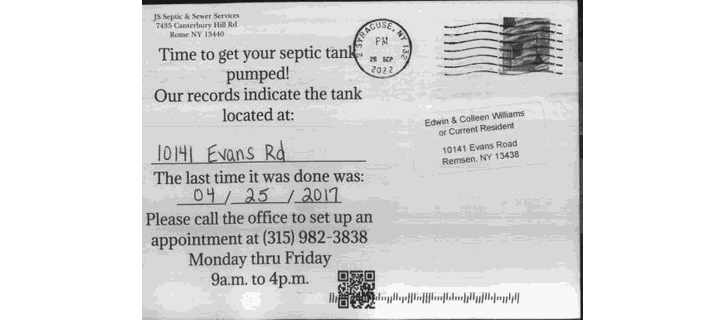 JS Septic & Sewer Services
7435 Canterbury Hill Rd
Rome NY 13440
Time to get your septic tank
pumped!
Our records indicate the tank
located at:
10141 Evans Rd
The last time it was done was:
04 / 25 / 2017
Please call the office to set up an
appointment at (315) 982-3838
Monday thru Friday
9a.m. to 4p.m.
SYRACUSE, NY 132
PM
28 SEP
2022
Edwin & Colleen Williams
or Current Resident
10141 Evans Road
Remsen, NY 13438